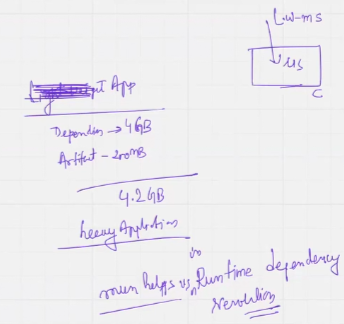 L.W-MS
MS
C
App
Dependies → 4GB
Artifact - 200MB
4.2GB
heavy Application
maven helps us in Runtime dependency
Resolution